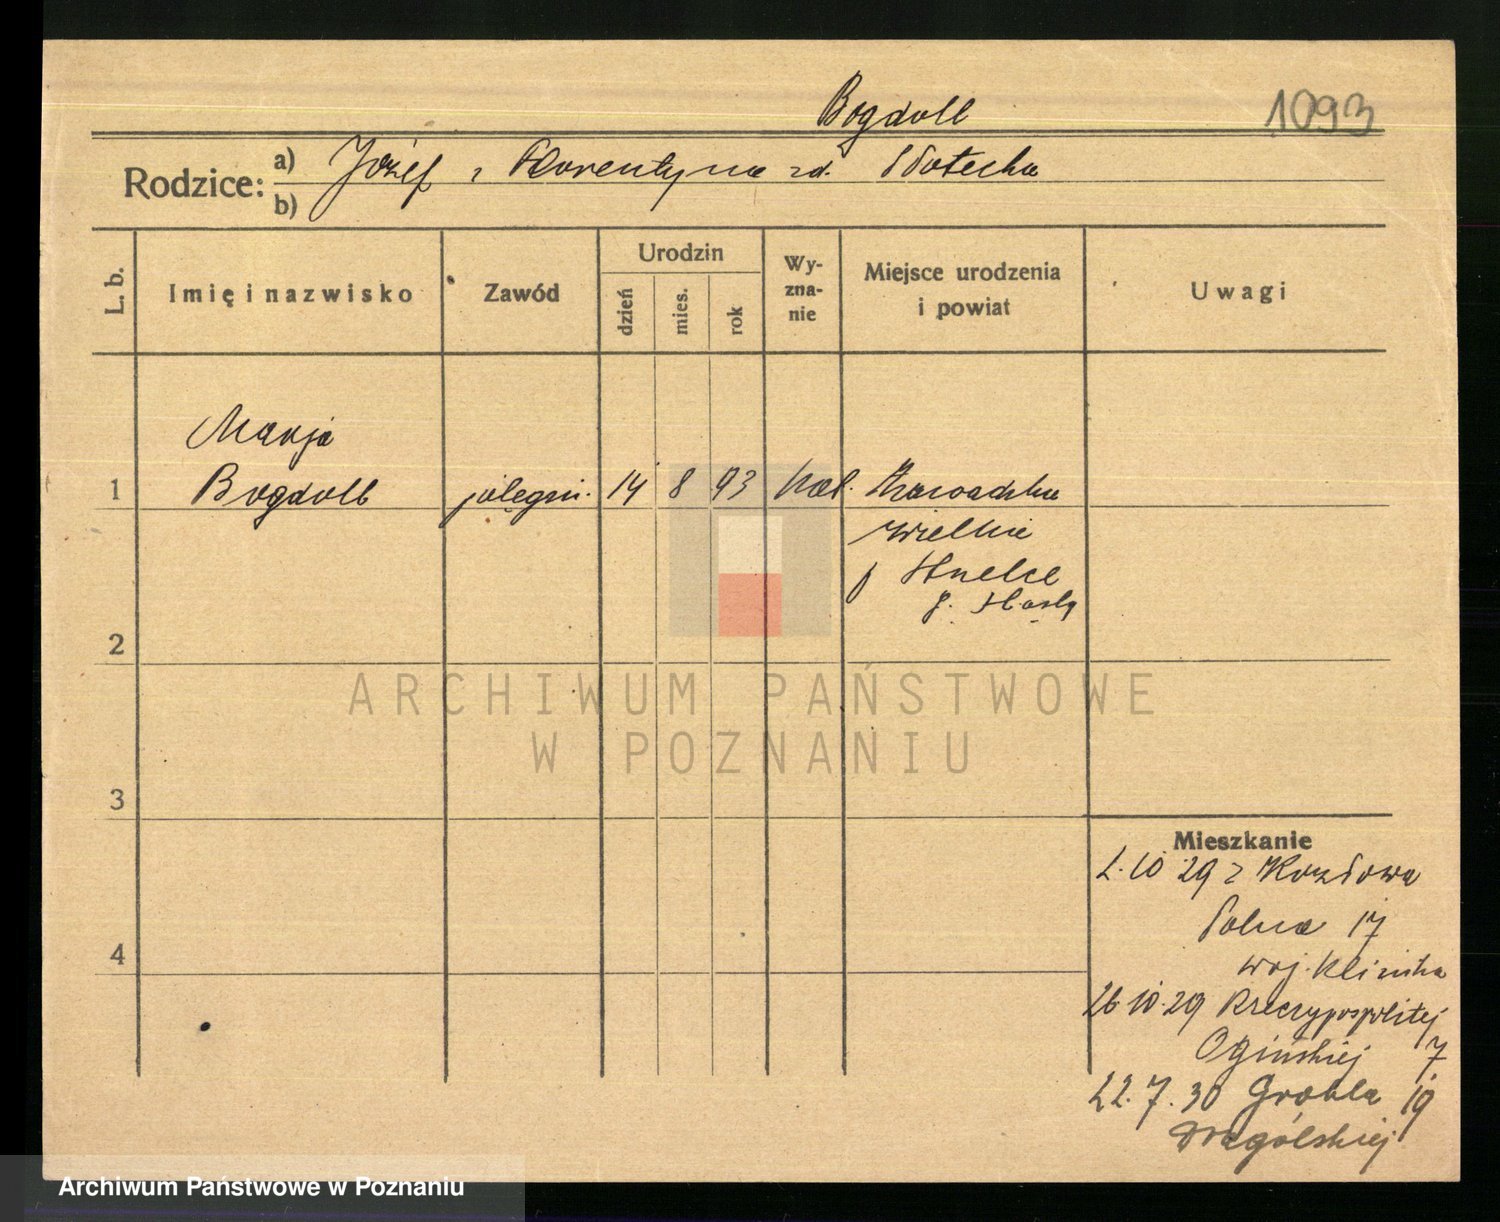 Bogdoll
1093
Rodzice: a) Józef i Florentyna zd.
b)
L. b.
Imię i nazwisko
Zawód
Urodzin
dzień
mies.
rok
Wy-
zna-
nie
Miejsce urodzenia
i powiat
Uwagi
Marja
1 Bogdoll pielęgn. 14 8 93 kat.
Wielkie
2
3
4
Mieszkanie
2.10.29 z
Polna 17
woj.
26.10.29 Rzeczypospolitej
Ogińskiej 7
22.7.30 Grobla 19
ARCHIWUM PAŃSTWOWE
W POZNANIU
Archiwum Państwowe w Poznaniu